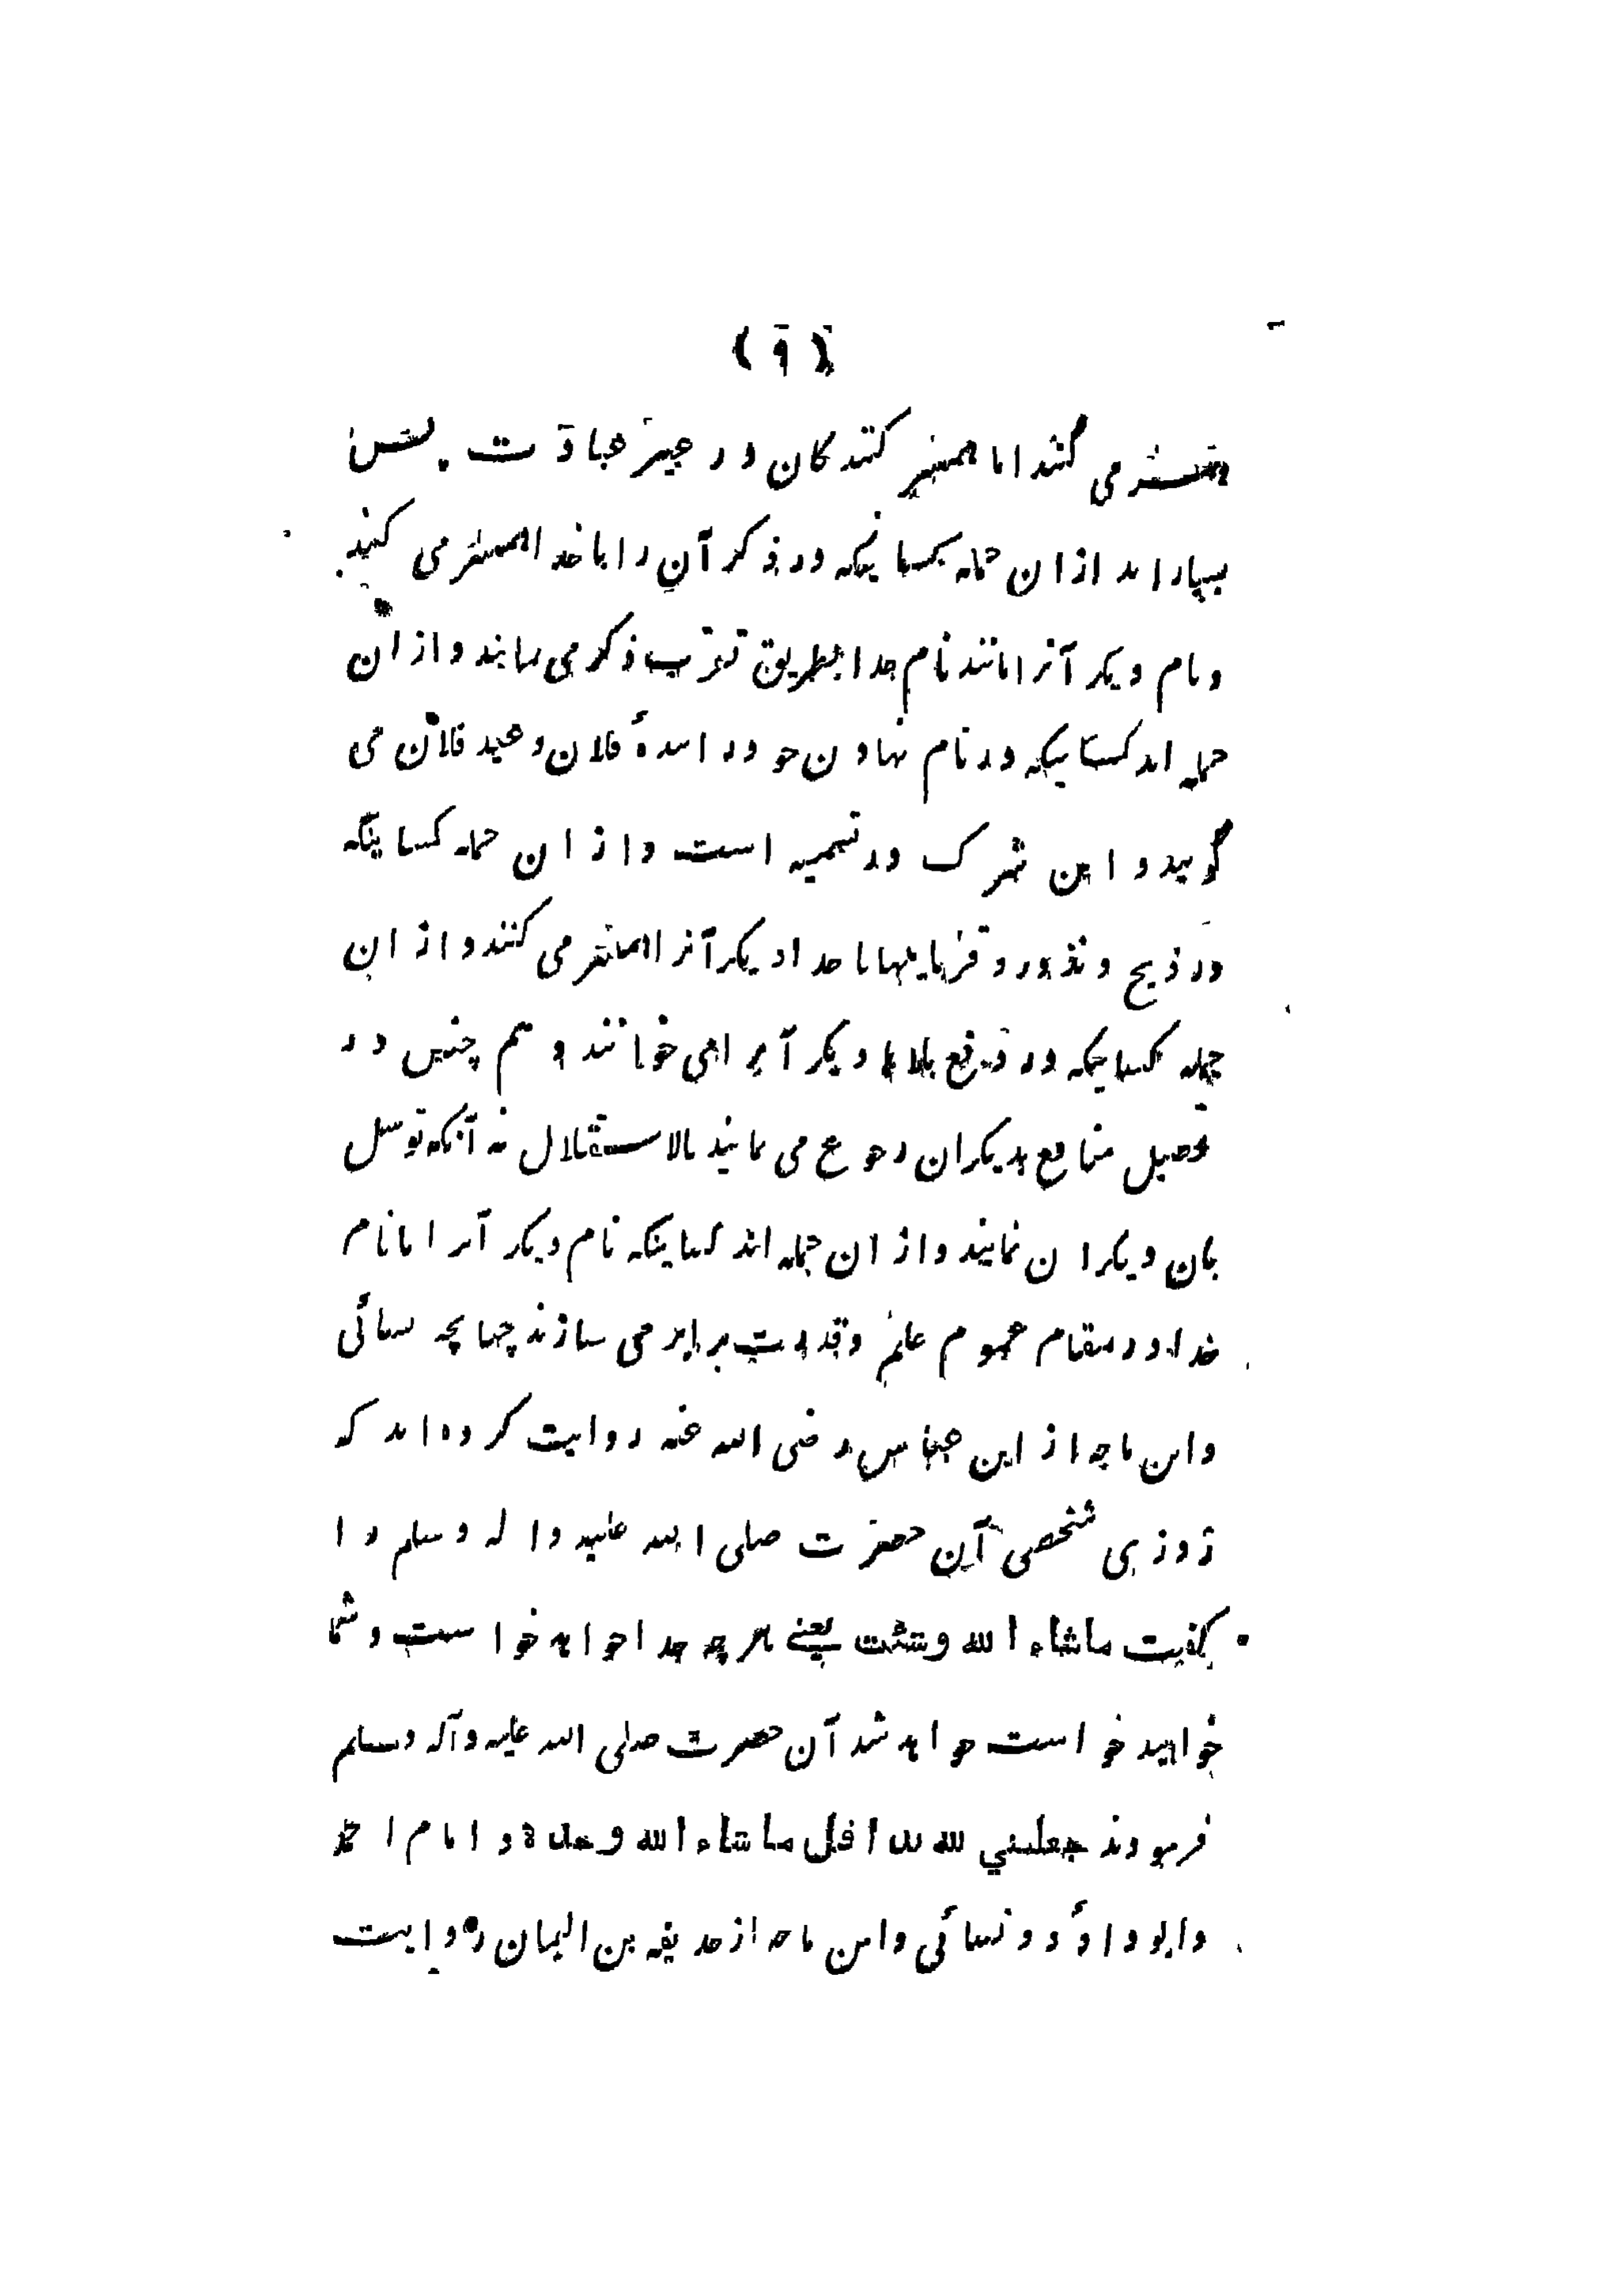 ( ۹ )
همسر می کنند اما همسر کنندگان در غیر عبادت پس
بسیار اند ازان جمله کسانیکه در ذکر آن را با خدا همسر می کنند
و نام دیگر آنرا مانند نام خدا بطریق تقرب ذکر می نمایند و ازان
جمله اند کسانیکه در نام نهادن خود را بندهٔ فلان و عبد فلان می
گویند و این شرک در تسمیه است و ازان جمله کسانیکه
در ذبح و نذور و قربانیها با خدا دیگر آنرا همسر می کنند و ازان
جمله کسانیکه در دفع بلا یا دیگر آنرا می خوانند و هم چنین در
تحصیل منافع بدیگران رجوع می نمایند بالاستقلال نه آنکه توسل
بان دیگران نمایند و ازان جمله اند کسانیکه نام دیگر آنرا با نام
خدا در مقام عموم علم و قدرت برابر می سازند چنانچه نسائی
و ابن ماجه از ابن عباس رضی الله عنه روایت کرده اند که
روزی شخصی آن حضرت صلی الله علیه و اله وسلم را
گفت ماشاء الله وشئت یعنے هر چه خدا خواهد خواست و شما
خواهید خواست خواهد شد آن حضرت صلی الله علیه و آله وسلم
فرمودند جعلتني لله ندا قل ماشاء الله وحدة و امام احمد
و ابو داؤد و نسائی و ابن ماجه از حذیفه بن الیمان روایت